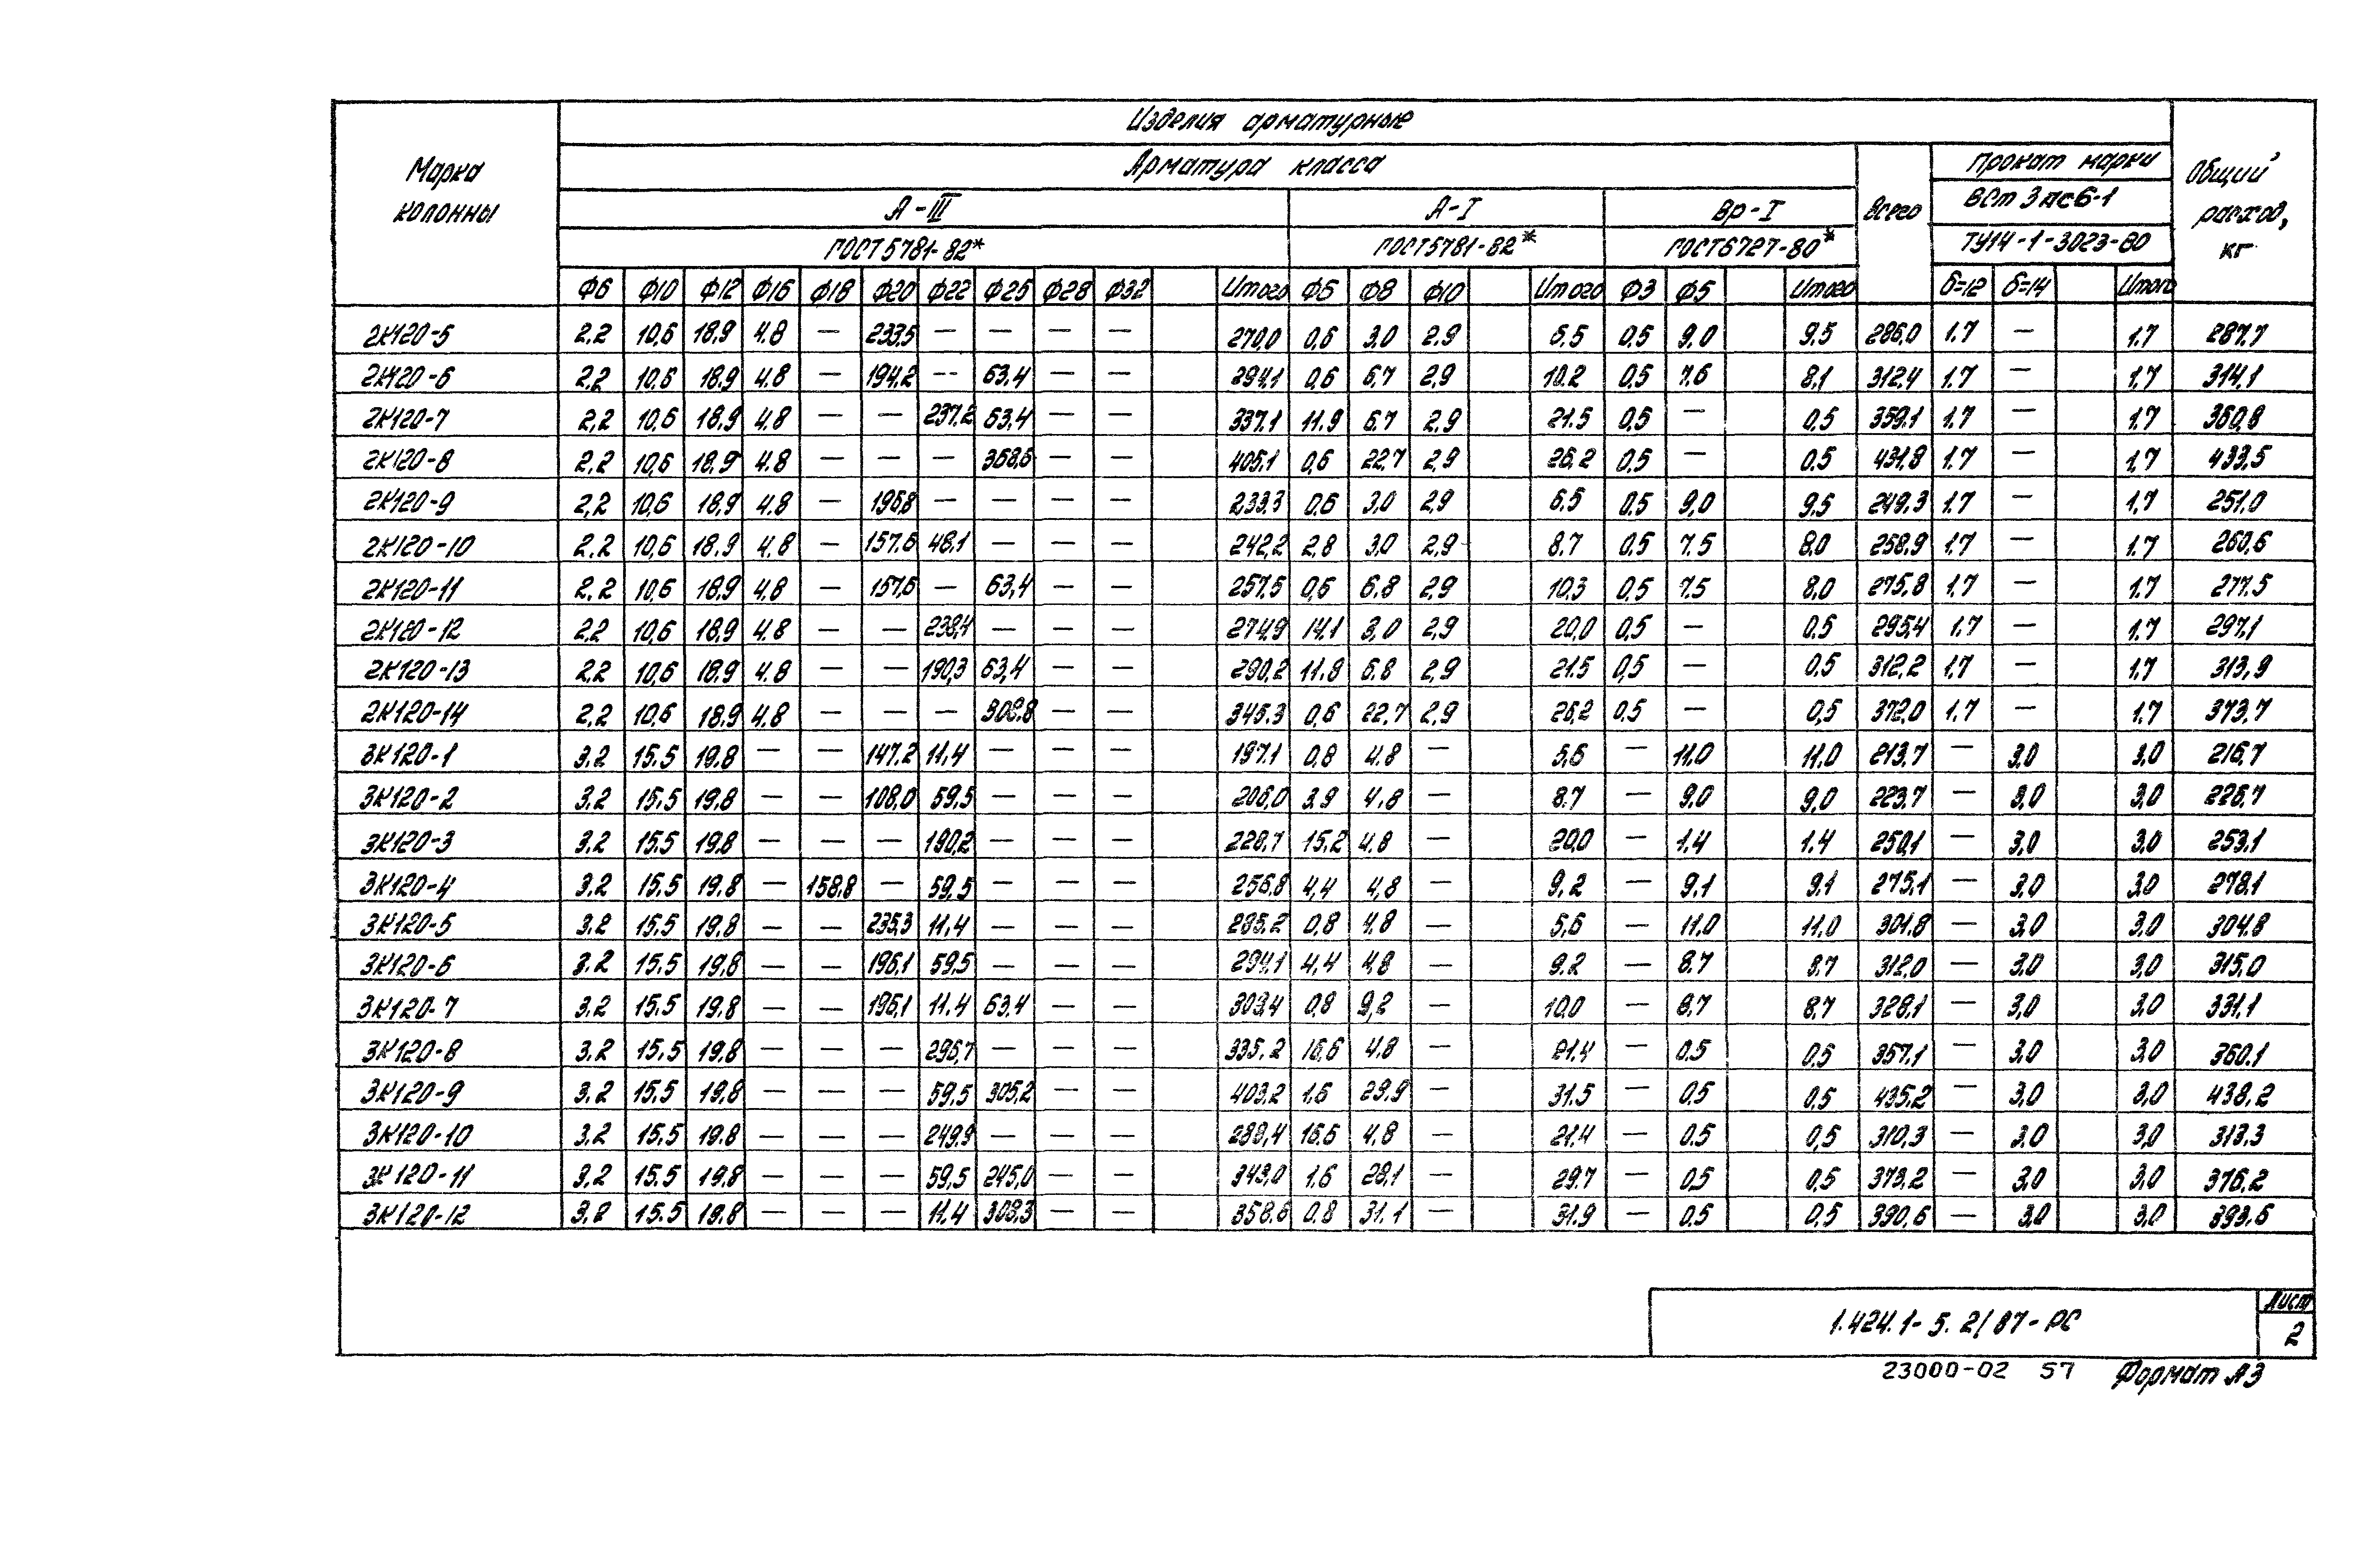 Марка колонны
Изделия арматурные
Общий расход, кг
Арматура класса
Всего
Прокат марки
А-III
А-I
Вр-I
ВСт 3 пс6-1
ГОСТ 5781-82*
ГОСТ 5781-82*
ГОСТ 6727-80*
ТУ14-1-3023-80
Ф6 Ф10 Ф12 Ф16 Ф18 Ф20 Ф22 Ф25 Ф28 Ф32 Итого Ф6 Ф8 Ф10 Итого Ф3 Ф5 Итого б=12 б=14 Итого
2К120-5 2.2 10,6 18,9 4.8 — 233,5 — — — — 270,0 0,6 3,0 2.9 6.5 0,5 9,0 9,5 286,0 1.7 — 1.7 287.7
2К120-6 2,2 10,6 18,9 4.8 — 194,2 -- 63,4 — — 294,1 0,6 6,7 2,9 10.2 0,5 7.6 8,1 312,4 1.7 — 1,7 314,1
2К120-7 2,2 10,6 18,9 4.8 — — 237.2 63,4 — — 337,1 11.9 6.7 2,9 21.5 0,5 — 0,5 359.1 1.7 — 1,7 360,8
2К120-8 2,2 10,6 18,9 4.8 — — — 368,6 — — 405,1 0,6 22.7 2,9 26,2 0.5 — 0.5 431.8 1.7 — 1,7 433,5
2К120-9 2,2 10,6 18,9 4.8 — 196,8 — — — — 233.3 0.6 3,0 2,9 6.5 0.5 9,0 9.5 249.3 1.7 — 1,7 251.0
2К120-10 2.2 10,6 18.9 4.8 — 157.6 48.1 — — — 242,2 2,8 3,0 2,9 8.7 0.5 7.5 8,0 258,9 1.7 — 1.7 260,6
2К120-11 2.2 10,6 18,9 4.8 — 157,6 — 63,4 — — 257.5 0,6 6.8 2,9 10,3 0,5 7.5 8,0 275,8 1.7 — 1.7 277.5
2К120-12 2,2 10,6 18,9 4.8 — — 238,4 — — — 274,9 14.1 3,0 2,9 20,0 0,5 — 0.5 295,4 1.7 — 1.7 297.1
2К120-13 2.2 10,6 18.9 4.8 — — 190,3 63,4 — — 290,2 11.8 6.8 2,9 21.5 0,5 — 0.5 312,2 1.7 — 1.7 313,9
2К120-14 2.2 10,6 18,9 4.8 — — — 308.8 — — 345.3 0,6 22,7 2,9 26,2 0.5 — 0,5 372,0 1.7 — 1.7 373,7
3К120-1 3.2 15.5 19.8 — — 147.2 11,4 — — — 197.1 0,8 4.8 — 5,6 — 11.0 11.0 213.7 — 3,0 3,0 216,7
3К120-2 3.2 15,5 19,8 — — 108,0 59,5 — — — 206,0 3,9 4.8 — 8.7 — 9,0 9,0 223.7 — 3,0 3,0 226,7
3К120-3 3.2 15.5 19.8 — — — 190,2 — — — 228,7 15,2 4.8 — 20,0 — 1.4 1.4 250,1 — 3,0 3,0 253.1
3К120-4 3.2 15.5 19.8 — 158.8 — 59,5 — — — 256,8 4,4 4,8 — 9,2 — 9,1 9,1 275,1 — 3,0 3,0 278,1
3К120-5 3.2 15.5 19.8 — — 235,3 11,4 — — — 285.2 0,8 4.8 — 5,6 — 11.0 11,0 301.8 — 3,0 3,0 304.8
3К120-6 3.2 15.5 19,8 — — 196,1 59,5 — — — 294,1 4,4 4,8 — 9.2 — 8.7 8.7 312,0 — 3,0 3,0 315,0
3К120-7 3.2 15.5 19.8 — — 196,1 11.4 63,4 — — 303,4 0,8 9,2 — 10,0 — 8.7 8,7 328,1 — 3,0 3,0 331,1
3К120-8 3.2 15.5 19.8 — — — 296,7 — — — 335,2 16,6 4.8 — 21.4 — 0.5 0.5 357,1 — 3,0 3,0 360.1
3К120-9 3.2 15.5 19.8 — — — 59,5 305,2 — — 403,2 1.6 29.9 — 31.5 — 0.5 0.5 435,2 — 3,0 3,0 438.2
3К120-10 3.2 15.5 19.8 — — — 249.9 — — — 288,4 16.6 4.8 — 21.4 — 0.5 0,5 310,3 — 3,0 3,0 313.3
3К120-11 3,2 15.5 19.8 — — — 59,5 245,0 — — 343,0 1.6 28,1 — 29.7 — 0,5 0,5 373,2 — 3,0 3,0 376.2
3К120-12 3.2 15.5 19.8 — — — 11.4 308,3 — — 358.6 0.8 31.1 — 31.9 — 0.5 0,5 390,6 — 3,0 3,0 393.6
1.424.1-5.2/87-РС
Лист
2
23000-02 57
Формат А3